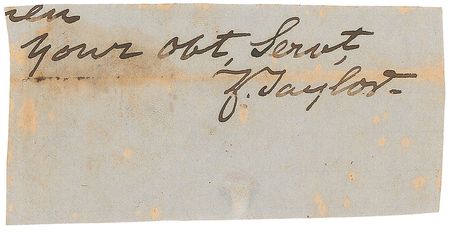 Your obt, Servt,
Z. Taylor